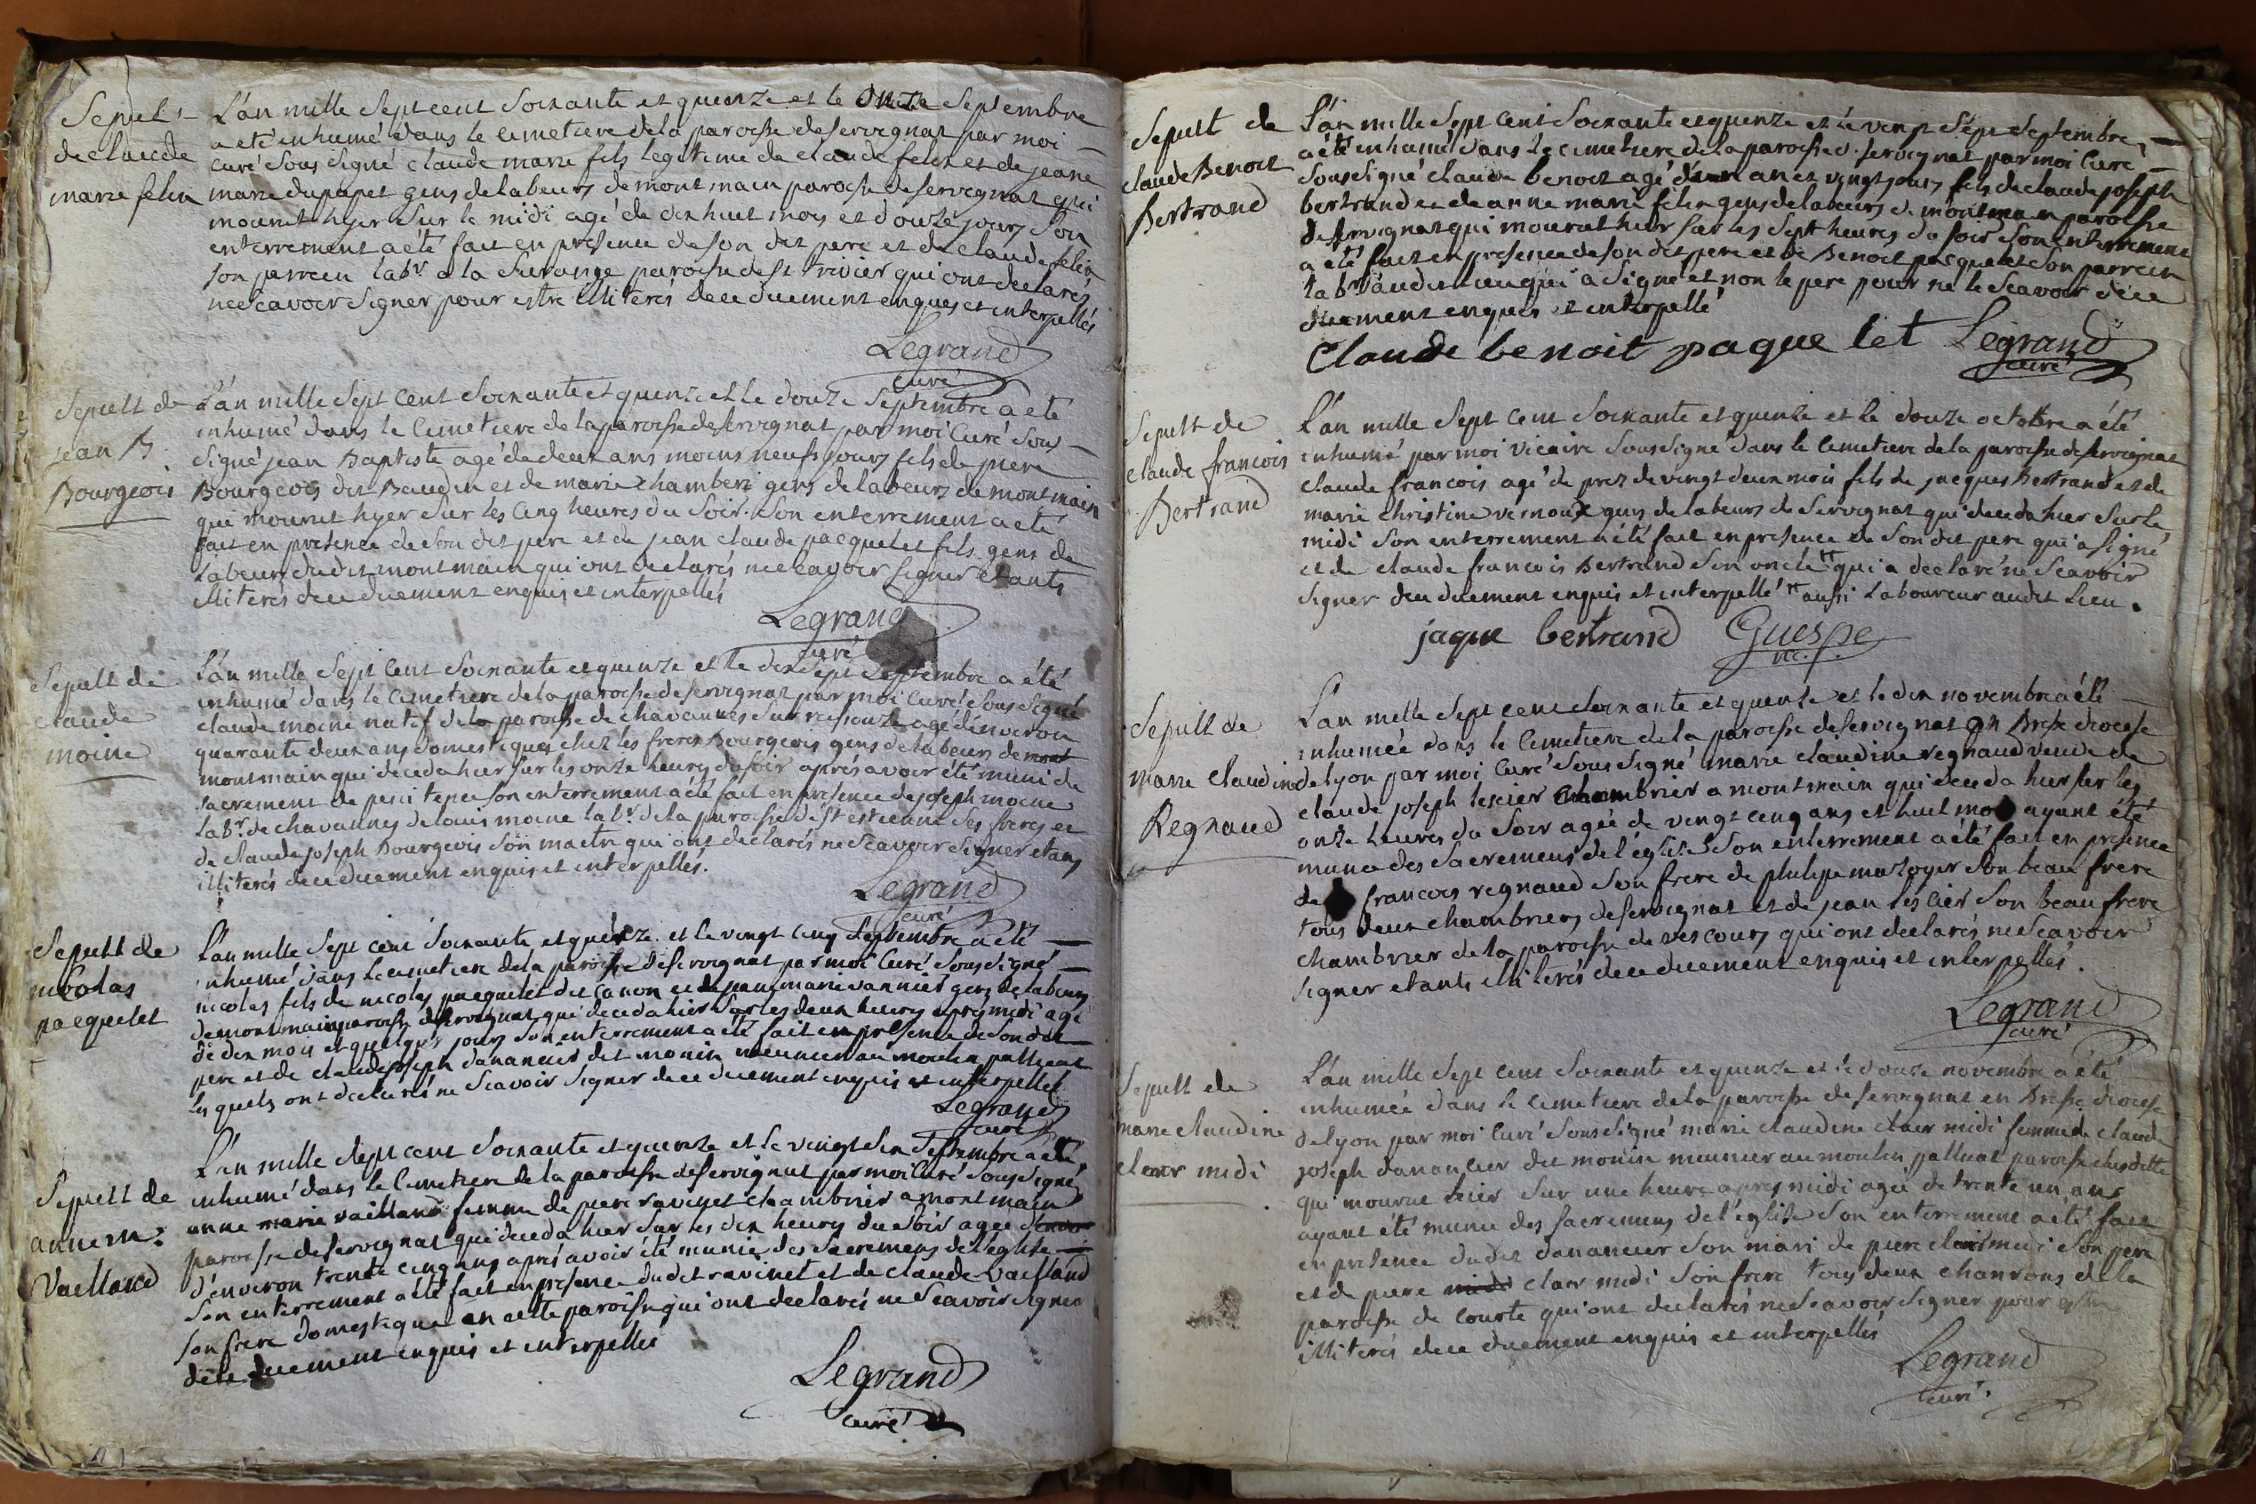 Sepult
de claude
marie felix
L'an mille sept cent soixante et quinze et le onze septembre
a eté inhumé dans le cimetiere de la paroisse de servignat par moi
curé sous signé claude marie fils legitime de claude felix et de jeane
marie dupapet gens de labeurs de montmain paroisse de servignat qui
mourut hyer sur le midi agé de dix huit mois et douze jours son
enterrement a été fait en présence de son dit pere et de claude felix
son parrein labr a la paroisse de st trivier qui ont declarés
ne scavoir signer pour estre illiterés de ce duement enquis et interpellés
Legrand
curé
Sepult de
jean B.
Bourgeois
L'an mille sept cent soixante et quinze et le douze septembre a eté
inhumé dans le cimetiere de la paroisse de servignat par moi curé sous
signé jean Baptiste agé de deux ans moins neuf jours fils de piere
Bourgeois dit Baudin et de marie chamberi gens de labeurs de montmain
qui mourut hyer sur les cinq heures du soir. Son enterrement a eté
fait en presence de son dit pere et de jean claude pacquelet fils gens de
labeurs du dit montmain qui ont declarés ne scavoir signer etants
illiterés de ce duement enquis et interpellés
Legrand
curé
Sepult de
claude
moine
L'an mille sept cent soixante et quinze et le dix sept septembre a été
inhumé dans le cimetiere de la paroisse de servignat par moi curé sous signé
claude moine natif de la paroisse de chavannes sur ressouze agé d'environ
quarante deux ans domestique chez les freres Bourgeois gens de labeurs de mont
montmain qui deceda hier sur les onze heures du soir aprés avoir été muni du
sacrement de penitence son enterrement a été fait en présence de joseph moine
labr. de chavannes de louis moine labr. de la paroisse de st estienne ses freres et
de claude joseph Bourgeois son maitre qui ont declarés ne scavoir signer etans
illiterés de ce duement enquis et interpellés.
Legrand
curé
Sepult de
nicolas
pacquelet
L'an mille sept cent soixante et quinze et le vingt cinq septembre a été
inhumé dans le cimetiere de la paroisse de servignat par moi curé sous signé
nicolas fils de nicolas pacquelet dit canon et de jeane marie vannier gens de labeurs
de montmain paroisse de servignat qui deceda hier sur les deux heures apres midi agé
de dix mois et quelques jours son enterrement a été fait en présence de son dit
pere et de claude joseph danancier dit monin meunier au moulin palluat
lesquels ont declarés ne scavoir signer de ce duement enquis et interpellés
Legrand
curé
Sepult de
anne m:
Vailland
L'an mille sept cent soixante et quinze et le vingt six septembre a été
inhumé dans le cimetiere de la paroisse de servignat par moi curé sous signé
anne marie vailland femme de piere ravinet chambrier a montmain
paroisse de servignat qui deceda hier sur les dix heures du soir agée
d'environ trente cinq ans aprés avoir été munie des sacremens de l'eglise
son enterrement a été fait en présence du dit ravinet et de claude vailland
son frere domestique en cette paroisse qui ont declarés ne scavoir signer
de ce duement enquis et interpellés
Legrand
curé
Sepult de
claude Benoit
Bertrand
L'an mille sept cent soixante et quinze et le vingt sept septembre
a été inhumé dans le cimetiere de la paroisse de servignat par moi curé
sous signé claude benoit agé d'un an et vingt jours fils de claude joseph
bertrand et de anne marie felix gens de labeurs de montmain paroisse
de servignat qui mourut hier sur les sept heures du soir son enterrement
a été fait en presence de son dit pere et de Benoit pacquelet son parrein
labr. audit lieu qui a signé et non le pere pour ne le scavoir de ce
duement enquis et interpellé
Claude benoit paquelet Legrand
curé
Sepult de
claude francois
Bertrand
L'an mille sept cent soixante et quinze et le douze octobre a été
inhumé par moi vicaire sous signé dans le cimetiere de la paroisse de servignat
claude francois agé de prez de vingt deux mois fils de jacques Bertrand et de
marie christine vernoux gens de labeurs de servignat qui deceda hier sur le
midi son enterrement a été fait en presence de son dit pere qui a signé
et de claude francois Bertrand son oncle # qui a declaré ne scavoir
signer de ce duement enquis et interpellé # aussi laboureur audit lieu.
jaque bertrand Guespe
vic.
Sepult de
marie claudine
Regnaud
L'an mille sept cent soixante et quinze et le dix novembre a été
inhumée dans le cimetiere de la paroisse de servignat en Bresse diocese
de lyon par moi curé sous signé marie claudine regnaud veuve de
claude joseph lescier chambrier a montmain qui deceda hier sur les
onze heures du soir agée de vingt cinq ans et huit mois ayant été
munie des sacremens de l'église son enterrement a été fait en présence
de francois regnaud son frere de philipe mazoyer son beau frere
tous deux chambriers de servignat et de jean lescier son beau frere
chambrier de la paroisse de vescours qui ont declarés ne scavoir
signer etants illiterés de ce duement enquis et interpellés.
Legrand
curé
Sepult de
marie claudine
clair midi
L'an mille sept cent soixante et quinze et le douze novembre a été
inhumée dans le cimetiere de la paroisse de servignat en Bresse diocese
de lyon par moi curé sous signé marie claudine clair midi femme de claude
joseph danancier dit monin meunier au moulin palluat paroisse
qui mourut hier sur une heure apres midi agée de trente un ans
ayant été munie des sacremens de l'église son enterrement a été fait
en presence dudit danancier son mari de piere clair midi son pere
et de piere midi clair midi son frere tous deux de la
paroisse de courte qui ont declarés ne scavoir signer pour estre
illiterés de ce duement enquis et interpellés
Legrand
curé.